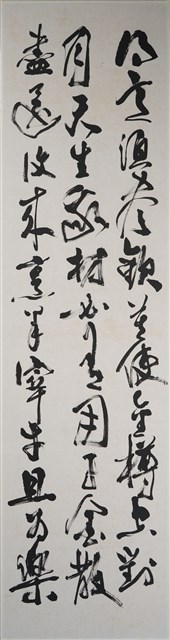 得意須尽歡莫使金樽空對
月天生我材必有用千金散
盡還復來烹羊宰牛且為樂